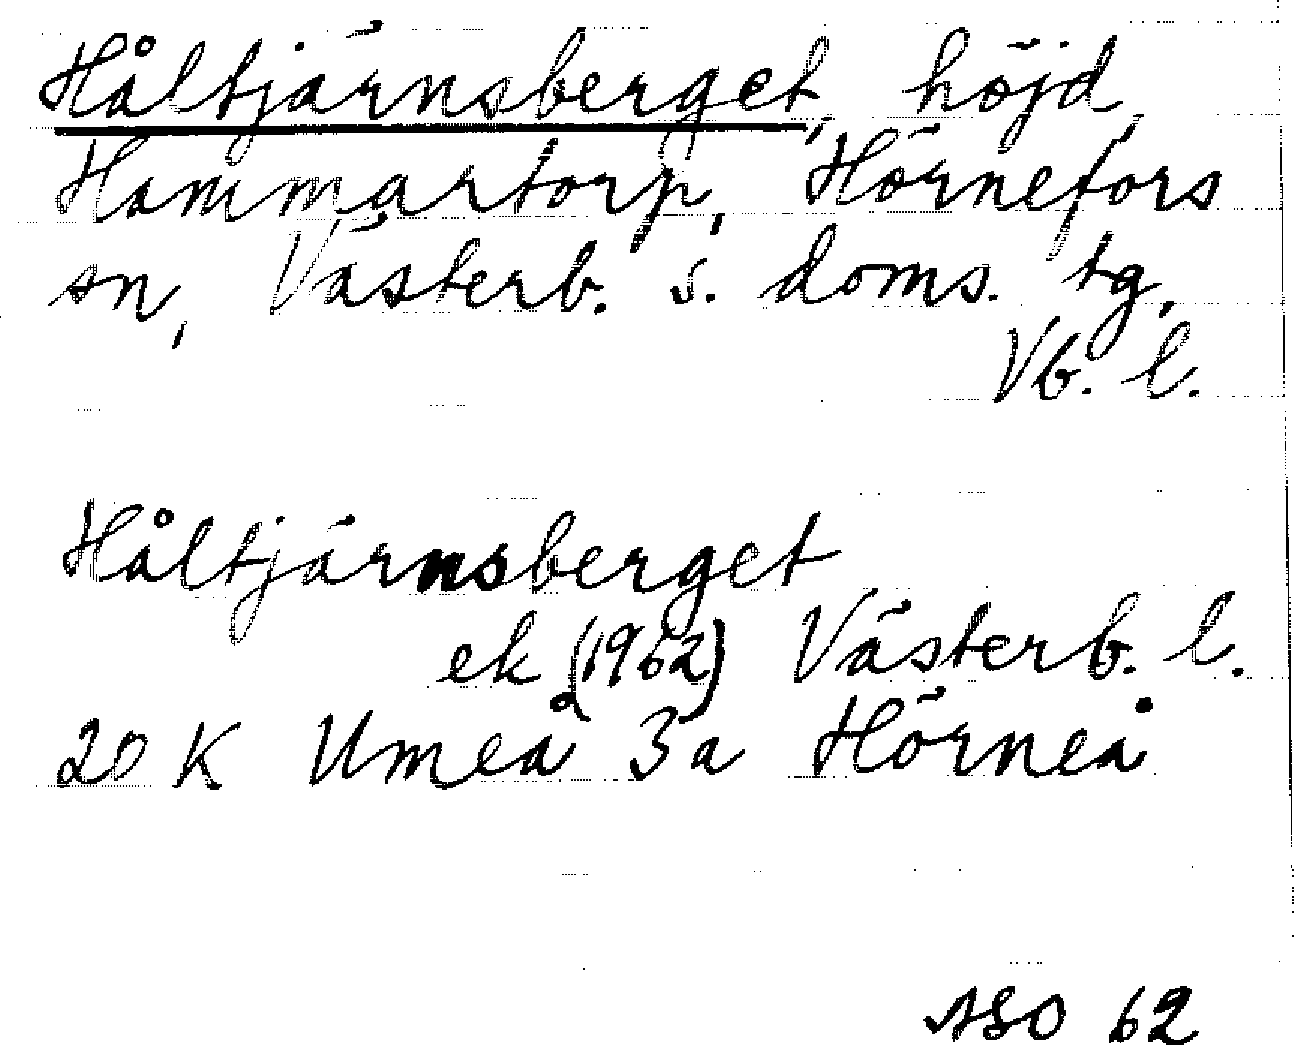 Håltjärnsberget, höjd,
Hammartorp, Hörnefors
sn, Västerb. s. doms. tg,
Vb. l.
Håltjärnsberget
ek (1962) Västerb. l.
20 K Umeå 3a Hörneå
ASO 62